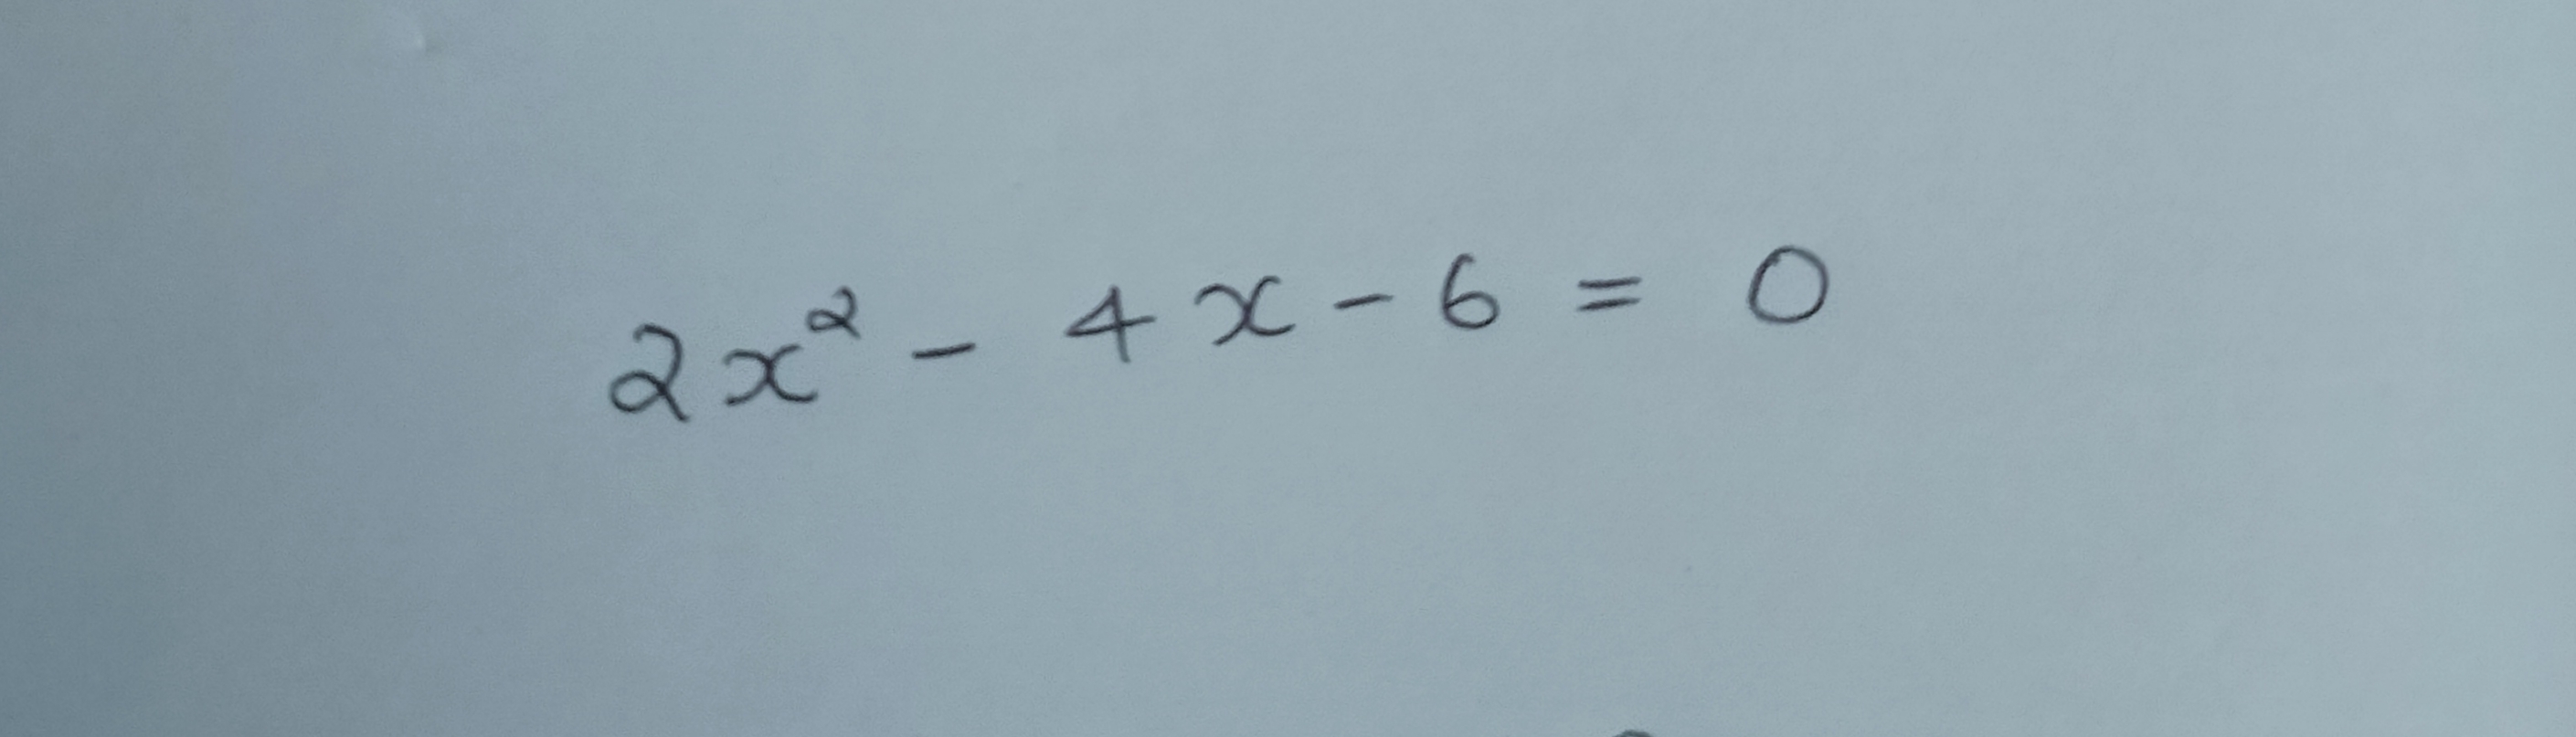 2x² - 4x - 6 = 0